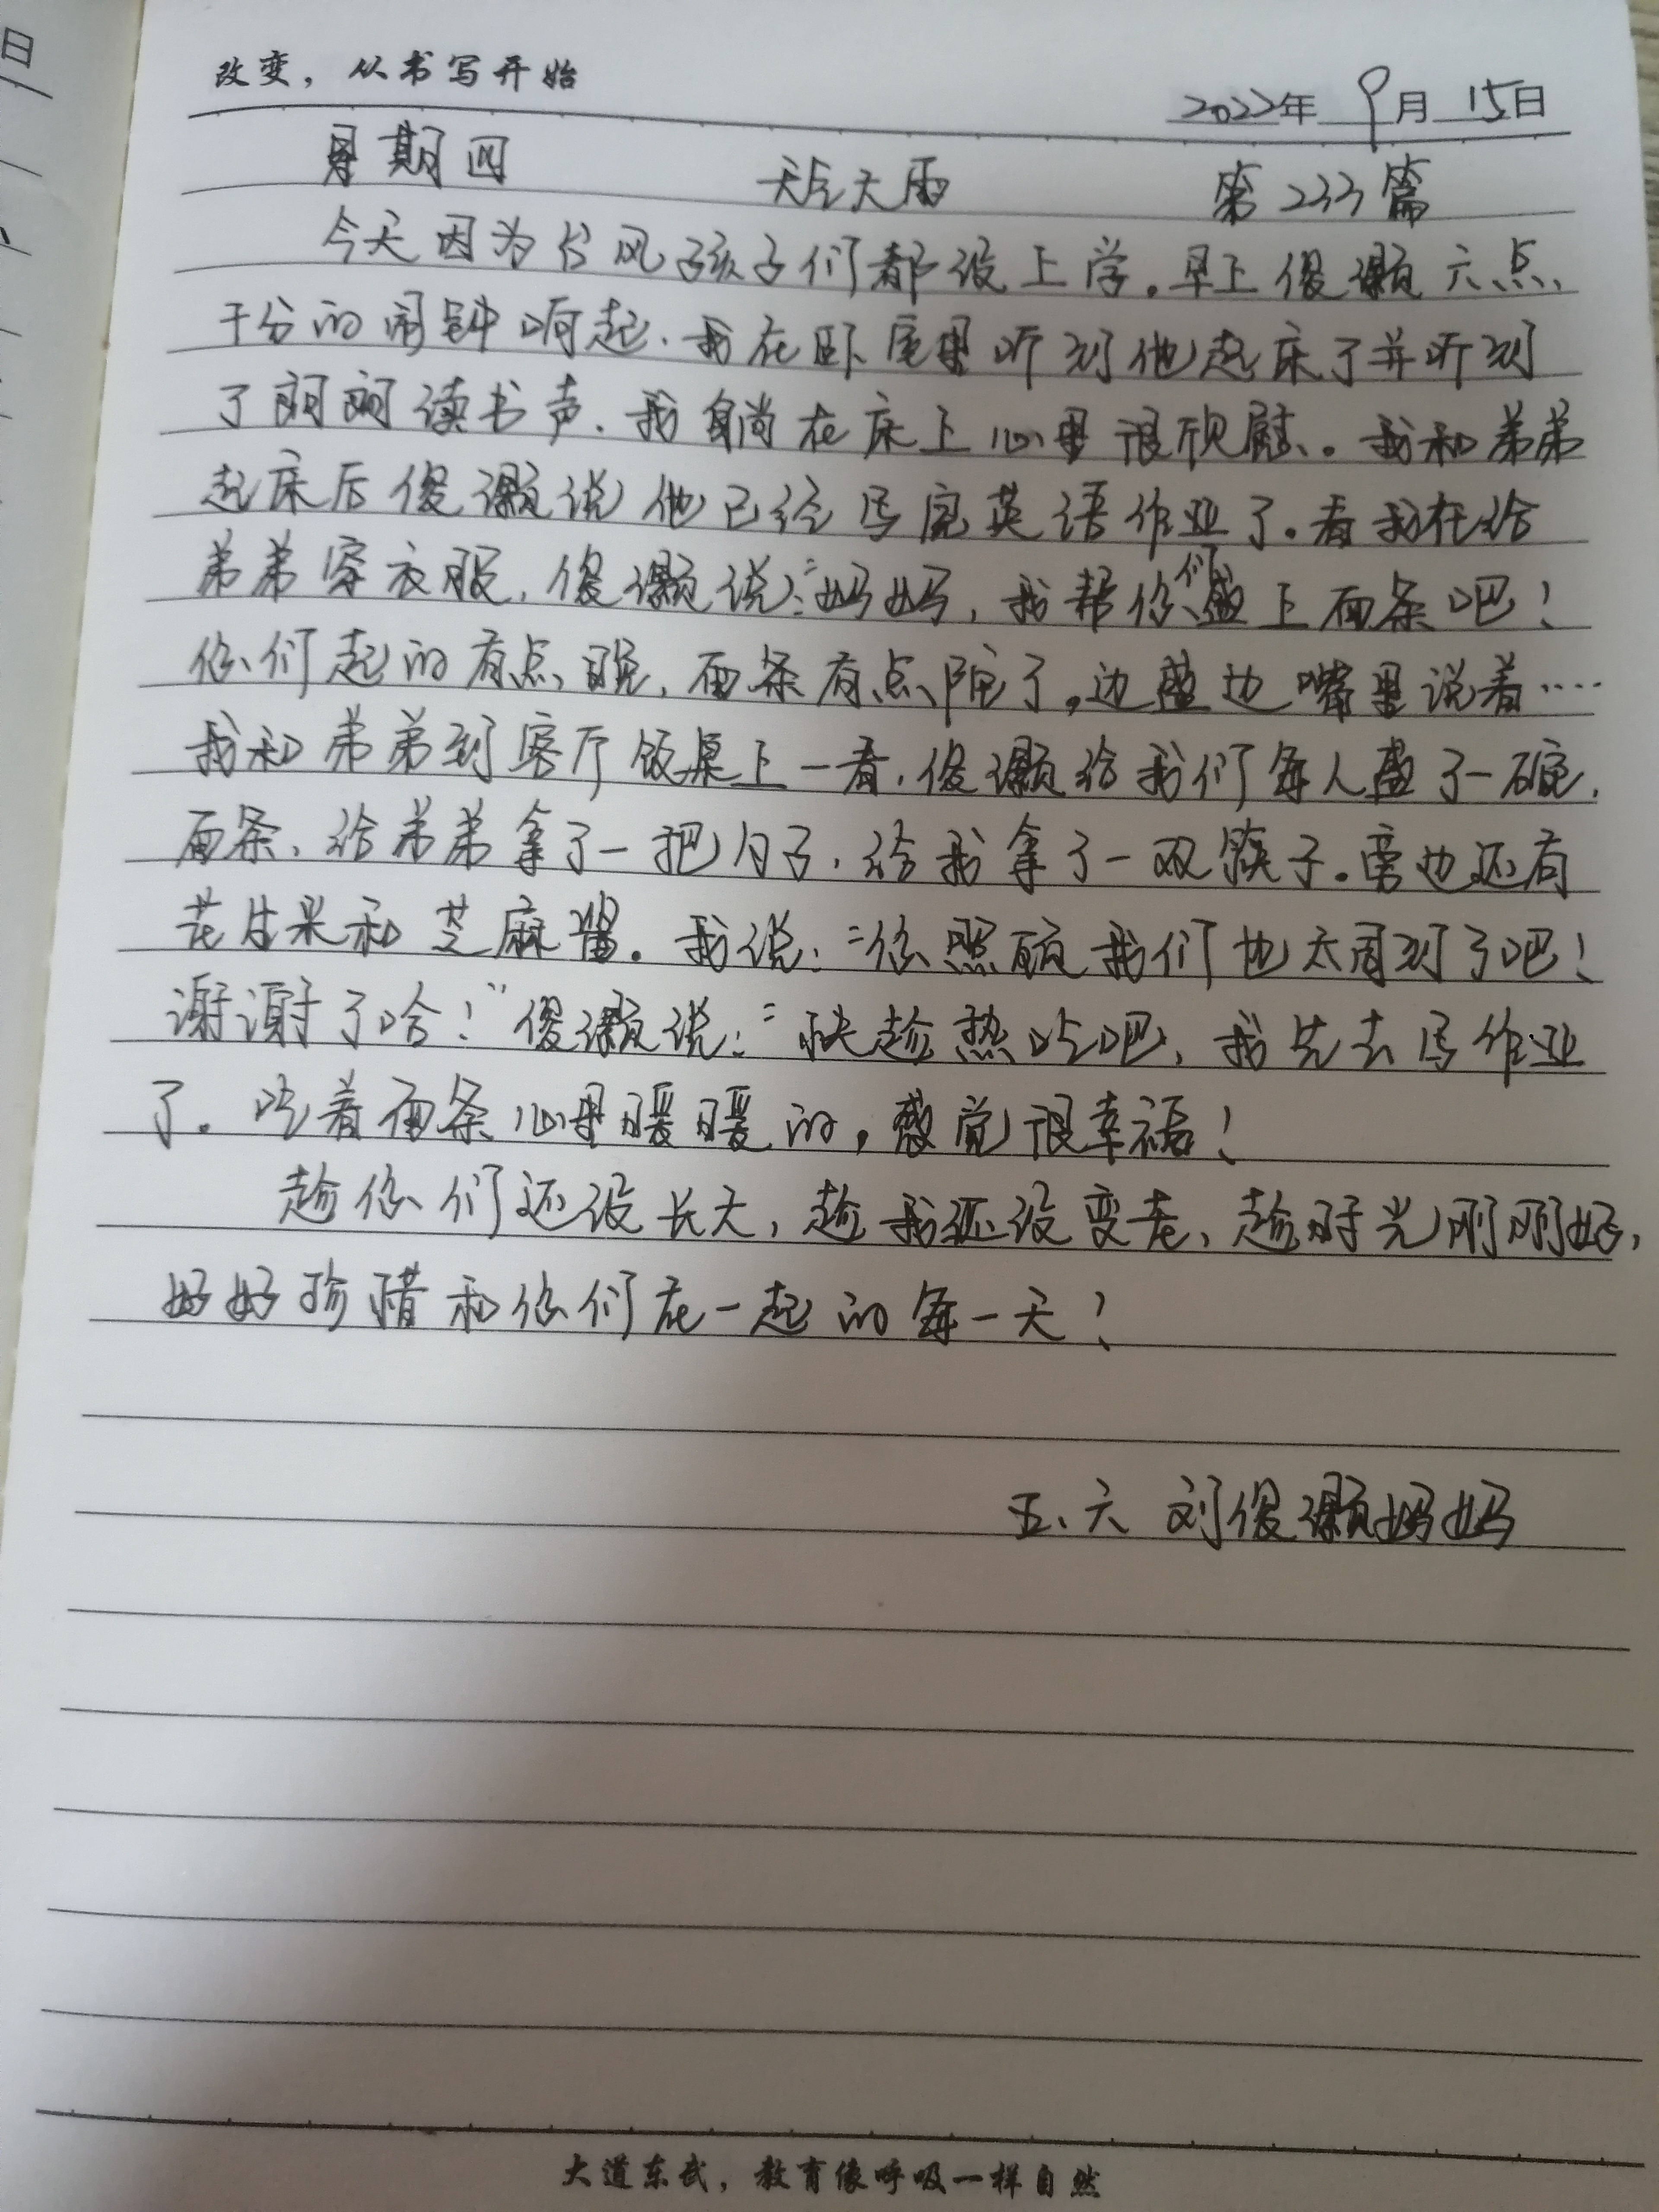 日
改变，从书写开始
2022年 9月 15日
星期四 天气大雨 第233篇
今天因为台风孩子们都没上学。早上俊灏六点
十分的闹钟响起、我在卧室里听到他起床了并听到
了朗朗读书声、我躺在床上心里很欣慰。我和弟弟
起床后俊灏说他已经写完英语作业了。看我在给
弟弟穿衣服，俊灏说："妈妈，我帮你们盛上面条吧！
你们起的有点晚，面条有点陀了。边盛边嘴里说着……
我和弟弟到客厅饭桌上一看，俊灏给我们每人盛了一碗
面条、给弟弟拿了一把勺子，给我拿了一双筷子。旁边还有
花生米和芝麻酱。我说："你照顾我们也太周到了吧！
谢谢了哈！"俊灏说："快趁热吃吧，我先去写作业
了。吃着面条心里暖暖的，感觉很幸福！
趁你们还没长大，趁我还没变老、趁时光刚刚好，
好好珍惜和你们在一起的每一天！
五、六 刘俊灏妈妈
大道东武，教育像呼吸一样自然